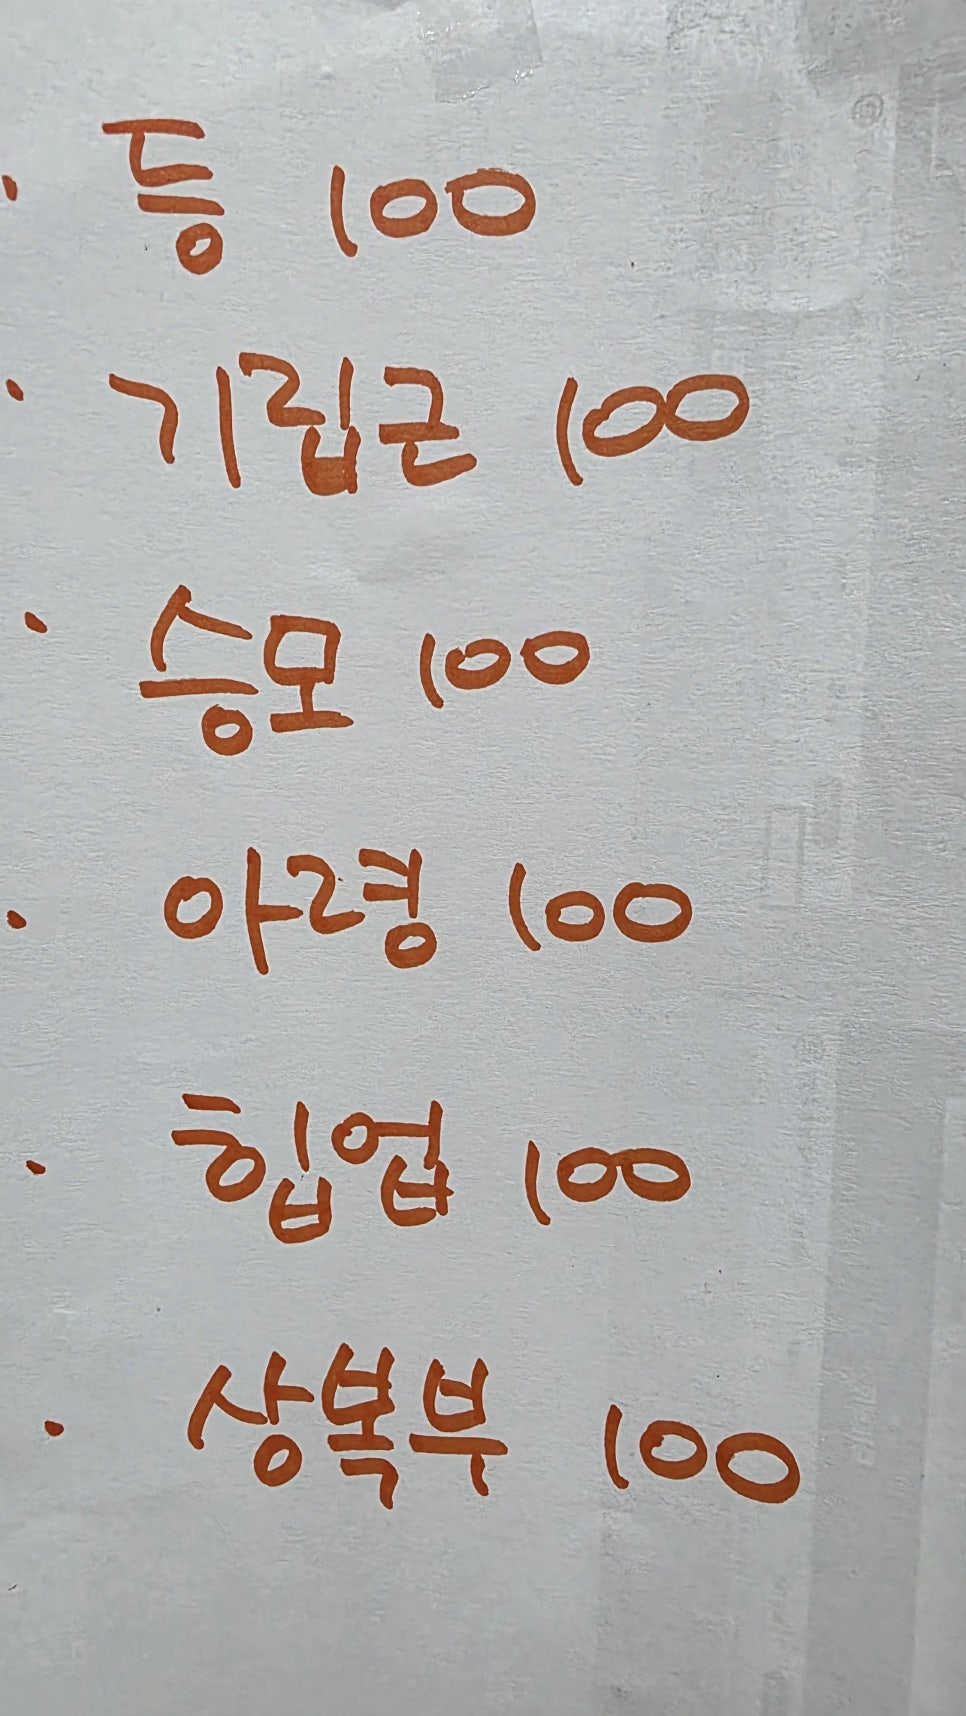 · 등 100
· 기립근 100
· 승모 100
· 아령 100
· 힙업 100
· 상복부 100